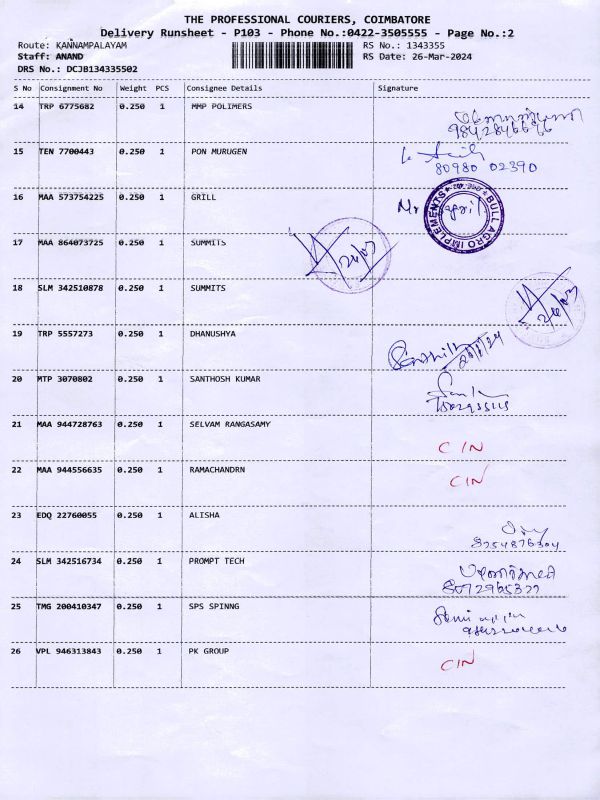 THE PROFESSIONAL COURIERS, COIMBATORE
Delivery Runsheet - P103 - Phone No.:0422-3505555 - Page No.:2
Route: KANNAMPALAYAM RS No.: 1343355
Staff: ANAND RS Date: 26-Mar-2024
DRS No.: DCJB134335502
S No Consignment No Weight PCS Consignee Details Signature
14 TRP 6775682 0.250 1 MMP POLIMERS
9842846696
15 TEN 7700443 0.250 1 PON MURUGEN
80980 02390
16 MAA 573754225 0.250 1 GRILL
Mr
BULL AGRO IMPLEMENTS
17 MAA 864073725 0.250 1 SUMMITS
26/03
18 SLM 342510878 0.250 1 SUMMITS
26/03
19 TRP 5557273 0.250 1 DHANUSHYA
20 MTP 3070802 0.250 1 SANTHOSH KUMAR
21 MAA 944728763 0.250 1 SELVAM RANGASAMY
CIN
22 MAA 944556635 0.250 1 RAMACHANDRN
CIN
23 EDQ 22760055 0.250 1 ALISHA
8254876304
24 SLM 342516734 0.250 1 PROMPT TECH
8072965322
25 TMG 200410347 0.250 1 SPS SPINNG
26 VPL 946313843 0.250 1 PK GROUP
CIN